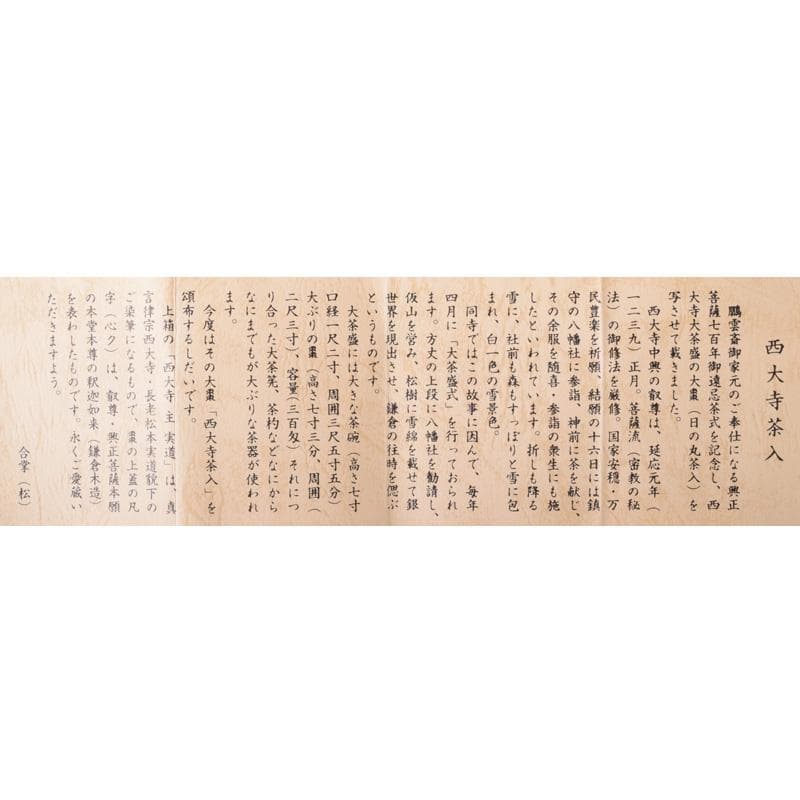 西大寺茶入
鵬雲斎御家元のご奉仕になる興正
菩薩七百年御遠忌茶式を記念し、西
大寺大茶盛の大棗(日の丸茶入)を
写させて戴きました。
西大寺中興の叡尊は、延応元年(
一二三九)正月。菩薩流(密教の秘
法)の御修法を厳修。国家安穏・万
民豊楽を祈願、結願の十六日には鎮
守の八幡社に参詣、神前に茶を献じ、
その余服を随喜・参詣の衆生にも施
したといわれています。折しも降る
雪に、社前も森もすっぽりと雪に包
まれ、白一色の雪景色。
同寺ではこの故事に因んで、毎年
四月に「大茶盛式」を行っておられ
ます。方丈の上段に八幡社を勧請し、
仮山を営み、松樹に雪綿を載せて銀
世界を現出させ、鎌倉の往時を偲ぶ
というものです。
大茶盛には大きな茶碗(高さ七寸
口経一尺二寸、周囲三尺五寸五分)
大ぶりの棗(高さ七寸三分、周囲(
二尺三寸)、容量(三百匁)それにつ
り合った大茶筅、茶杓などなにから
なにまでもが大ぶりな茶器が使われ
ます。
今度はその大棗「西大寺茶入」を
頒布するしだいです。
上箱の「西大寺 主 実道」は、真
言律宗西大寺・長老松本実道貌下の
ご染筆になるもので、棗の上蓋の凡
字(心ク)は、叡尊・興正菩薩本願
の本堂本尊の釈迦如来(鎌倉木造)
を表わしたものです。永くご愛蔵い
ただきますよう。
合掌(松)